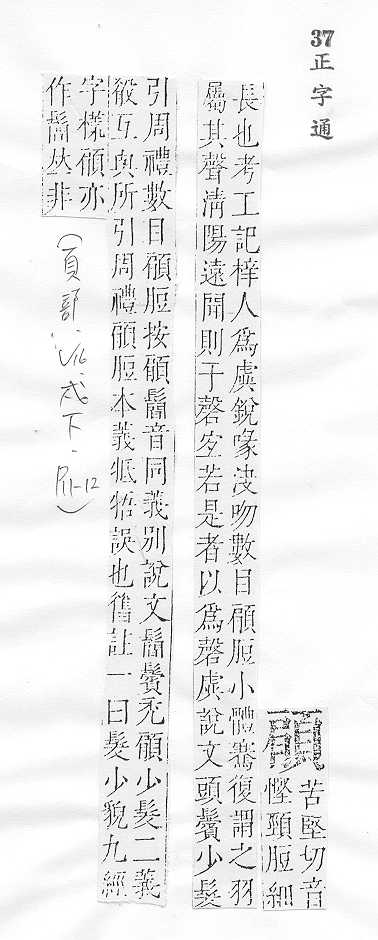 37 正字通
顅
苦堅切音
慳頸脰細
長也考工記梓人爲虡銳喙決吻數目顅脰小體騫復謂之羽
屬其聲清陽遠聞則于磬宐若是者以爲磬虡說文頭鬢少髮
引周禮數目顅脰按顅鬜音同義別說文鬜鬢禿顅少髮二義
殽互與所引周禮顅脰本義牴牾誤也舊註一曰髮少貌九經
字樣顅亦
作鬜𠀤非
(頁部, V16, 戌下, P11-12)